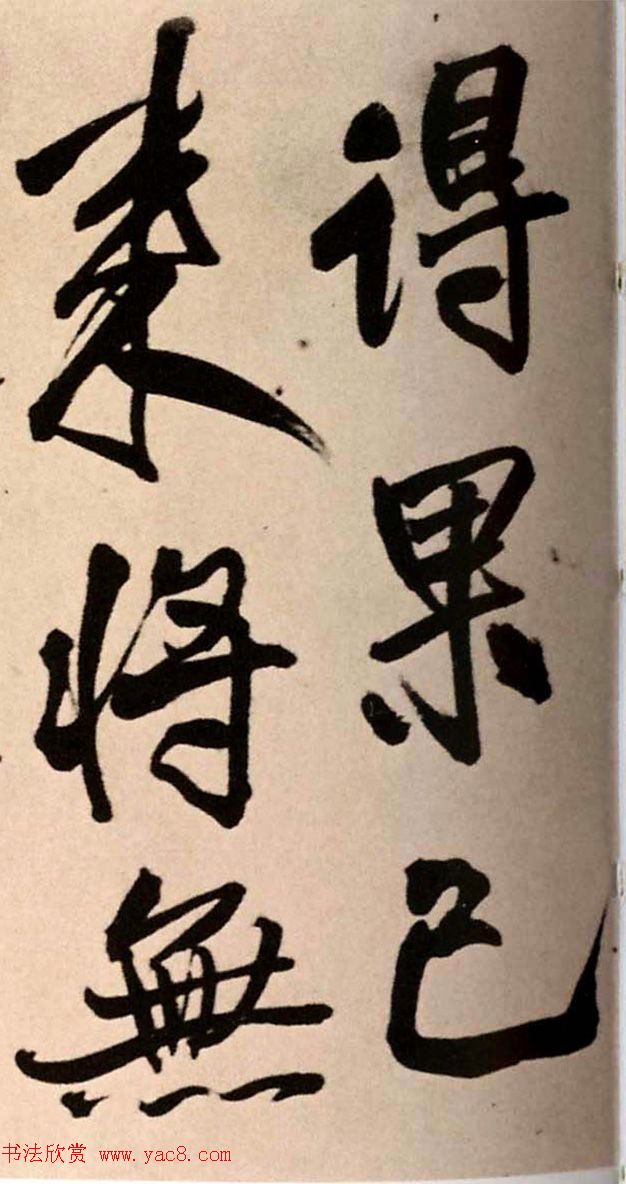 得果已
將無
书法欣赏 www.yac8.com